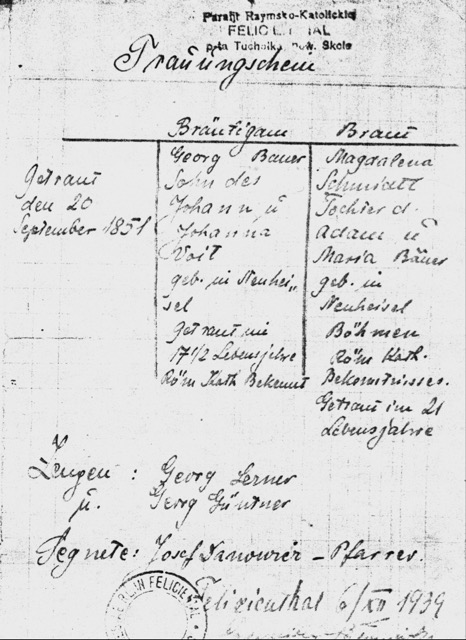 Parafji Raymsko-Katolickiej
FELICIENTAL
p-ta Tuchnika pow. Skole
Trauungschein
Bräutigam Braut
Getraut
den 20
September 1851
Georg Bauer
Sohn des
Johann u
Johanna
Voit
geb. in Neuhei„
sel
Getraut im
17 1/2 Lebensjahre
Röm Kath Bekennt
Magdalena
Schmidtt
Tochter d.
Adam u
Maria Bäuer
geb. in
Neuheisel
Böhmen
Röm Kath.
Bekenntnisses.
Getraut im 21
Lebensjahre
Zeugen : Georg Lerner
u. Georg Güntner
Segnete: Josef - Pfarrer.
Felizienthal 6/XII 1939
FELICIENTAL